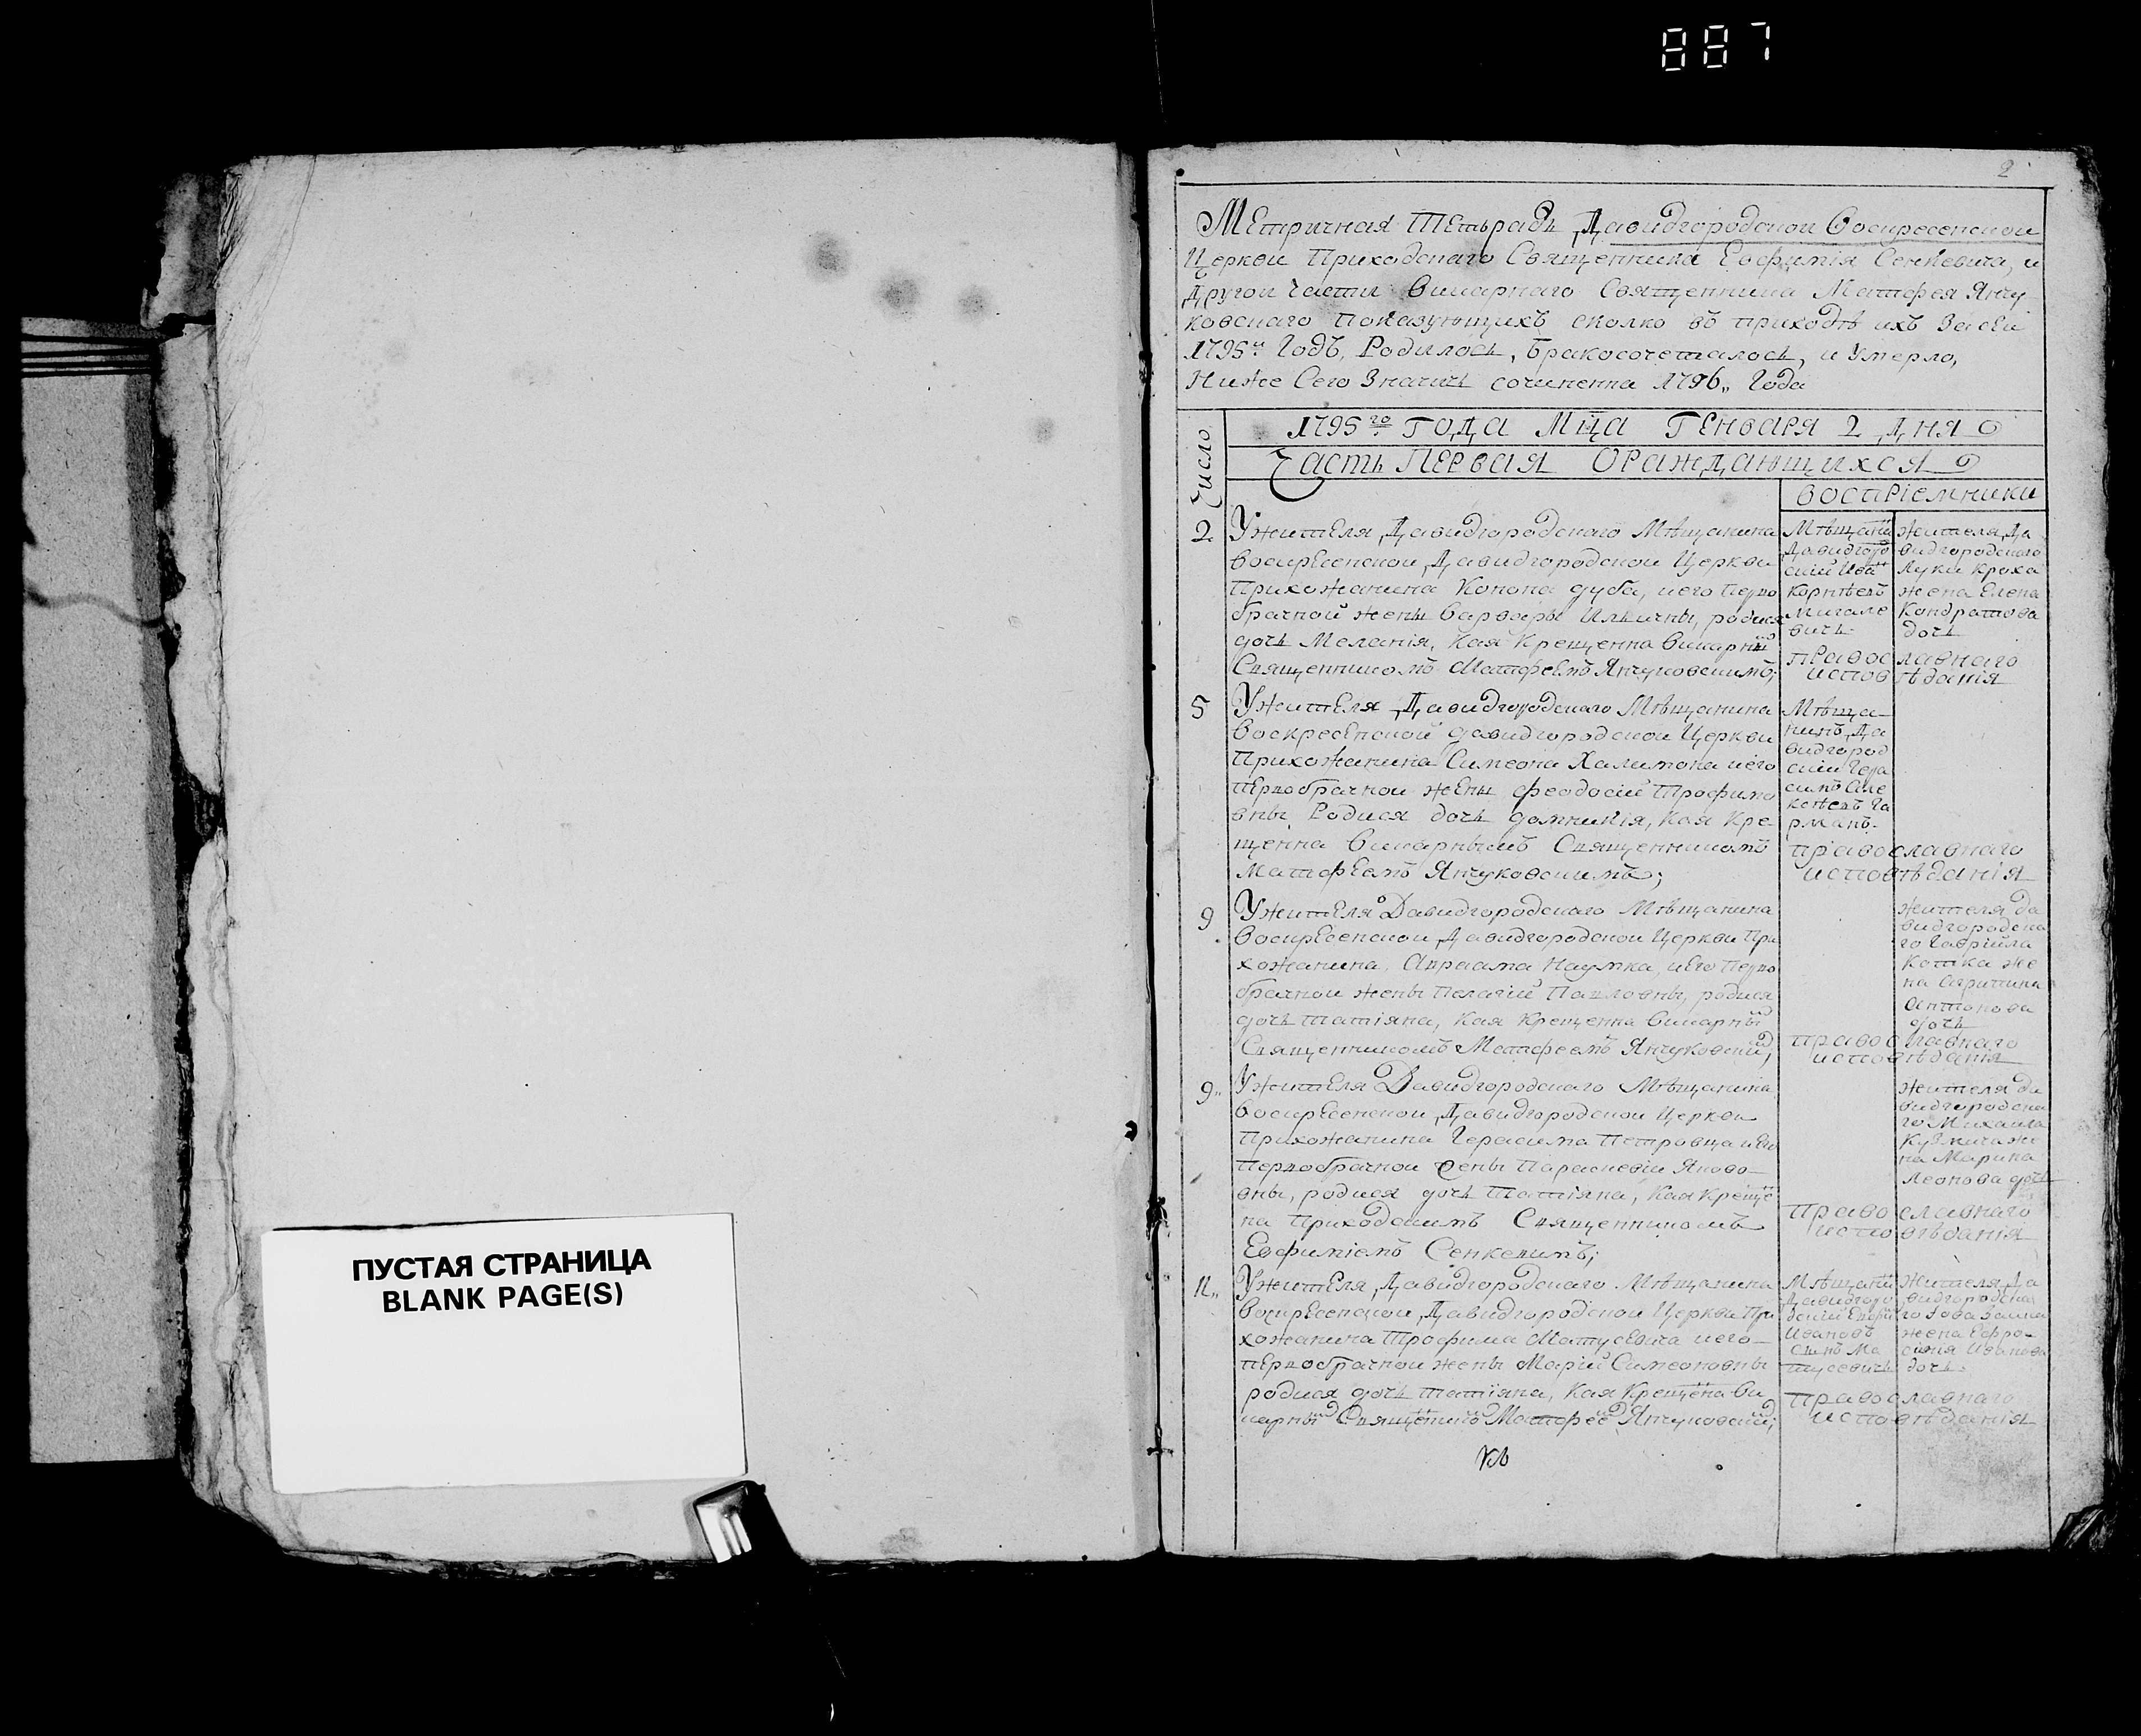 887
ПУСТАЯ СТРАНИЦА
BLANK PAGE(S)
2
Метричная Тетьрадь Давидгородской Воскресенской
Церкви Приходскаго Священника Евфимія Сенкевича, и
Другои Части Викарнаго Священника Матфея Янчу
ковскаго Показующихъ сколко въ приходѣ ихъ За сей
1795й Годъ, Родилось, Бракосочеталось, и Умерло,
Ниже Сего Значитъ сочиненна 1796,, Года
Число
1795го Года Мца Генваря 2 дня
Часть Первая О Раждающихся
Воспріемники
2
У жителя Давидгородскаго Мѣщанина
Воскресенской Давидгородской Церкви
Прихожанина Конона дуба, иего Перво
брачной жены Варвары Ильичны, родися
дочь Меланія, Кая Крещенна Викарны
Священникомъ Матфеемъ Янчуковскимъ;
Мѣщани
Давидгоро
скій Ива
Корнѣевъ
Мигале
вичь
жителя Да
видгородскаго
Луки Кроха
жена Елена
Кондратова
дочь
Православнаго
исповѣданія
5
У жителя Давидгородскаго Мѣщанина
Воскресенской давидгородской Церкви
Прихожанина Симеона Халимона иего
Первобрачной жены феодосіи Трофимо
вны Родися дочь домникія, Кая Кре-
щенна Викарнымъ Священникомъ
Матфеемъ Янчуковскимъ;
Мѣща-
нинъ Да
видгород
скій Гера
симъ Але
ксѣевъ Га
рманъ.
Православнаго
исповѣданія
9
У жителя Давидгородскаго Мѣщанина
Воскресенской Давидгородской Церкви При
хожанина Авраама Наумка, иЕго Перво
брачной жены Пелагіи Павловны, родися
дочь татіяна, Кая Крещенна Викарны
Священникомъ Матфеемъ Янчуковски;
жителя да
видгородска
го Гавріила
Котка же
на Агрипина
Антонова
дочь
Православнаго
исповѣданія
9,,
У жителя Давидгородскаго Мѣщанина
Воскресенской Давидгородской Церкви
Прихожанина Герасима Петровца иЕго
Первобрачной жены Параскевіи Яково-
вны, родися дочь татіяна, Кая Креще
на Приходскимъ Священникомъ
Евфиміемъ Сенкевимъ;
жителя да
видгородска
го Михаила
Кузмича же
на Марина
Леонова дочь
Православнаго
исповѣданія
11,,
У жителя Давидгородскаго Мѣщанина
Воскресенской Давидгородской Церкви При
хожанина Трофима Матусевича иего
первобрачной жены Маріи Симеоновны
родися дочь татіяна, Кая Крещена Ви
карны Священико Матфее Янчуковски;
Мѣщани
Давидгоро
Иванов
сынъ Ма
тусевичь
жителя Да
видгородска
жена Ефро-
синия Иванова
дочь.
Православнаго
исповѣданія